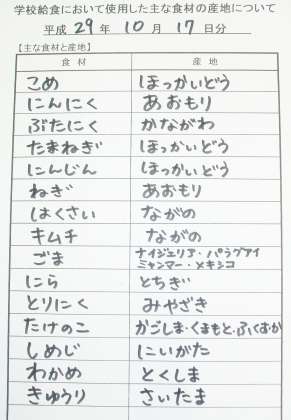 学校給食において使用した主な食材の産地について
平成 29 年 10 月 17 日分
【主な食材と産地】
食材 産地
こめ ほっかいどう
にんにく あおもり
ぶたにく かながわ
たまねぎ ほっかいどう
にんじん ほっかいどう
ねぎ あおもり
はくさい ながの
キムチ ながの
ごま ナイジェリア・パラグアイ
ミャンマー・メキシコ
にら とちぎ
とりにく みやざき
たけのこ かごしま・くまもと・ふくおか
しめじ にいがた
わかめ とくしま
きゅうり さいたま